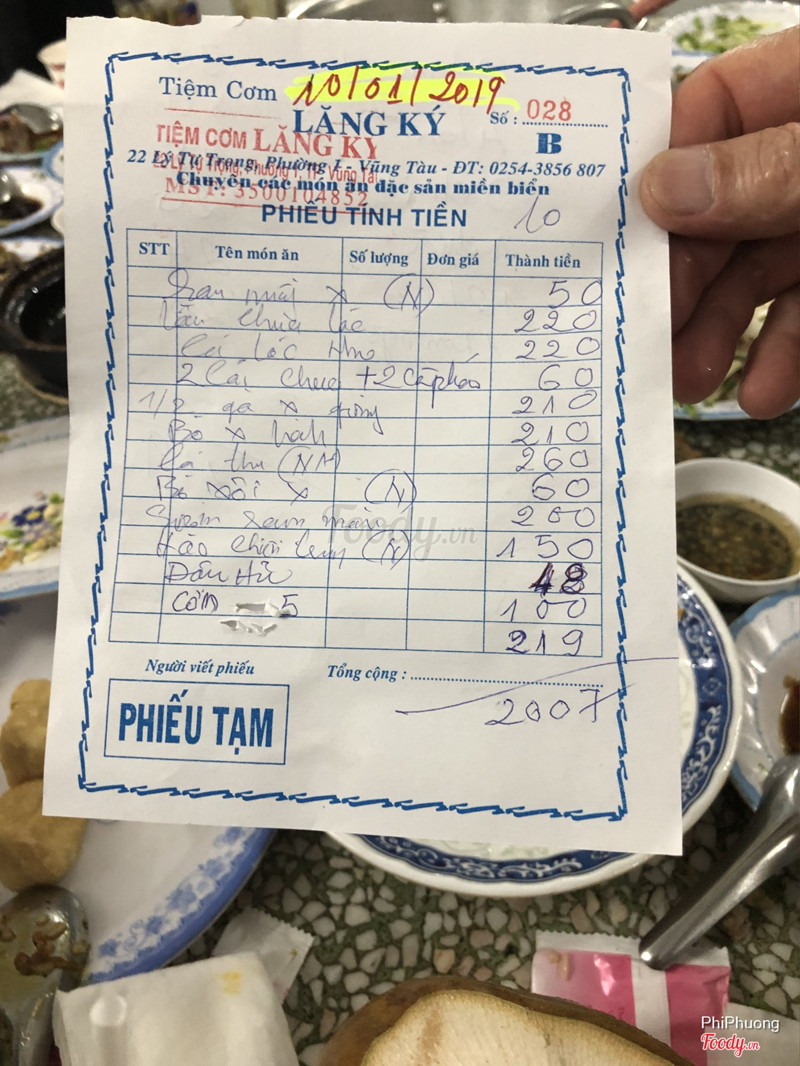 Tiệm Cơm 10/01/2019
LĂNG KÝ Số : 028
B
TIỆM CƠM LĂNG KÝ
22 Lý Tự Trọng, Phường 1 - Vũng Tàu - ĐT: 0254-3856 807
22 Lý Tự Trọng, Phường 1, TP. Vũng Tàu
Chuyên các món ăn đặc sản miền biển
MST: 3500104852
PHIẾU TÍNH TIỀN 10
STT Tên món ăn Số lượng Đơn giá Thành tiền
x (N) 50
220
Cá lóc kho 220
2 Cái chua + 2 cà pháo 60
1/2 gà x gừng 210
Bò x hành 210
Cá thu (NM) 260
x (N) 60
Sườn ram mặn 200
Hào chiên trứng (N) 150
Đậu Hủ 48
Cơm 5 100
219
Người viết phiếu Tổng cộng :
2007
PHIẾU TẠM
Foody.vn
PhiPhuong
Foody.vn